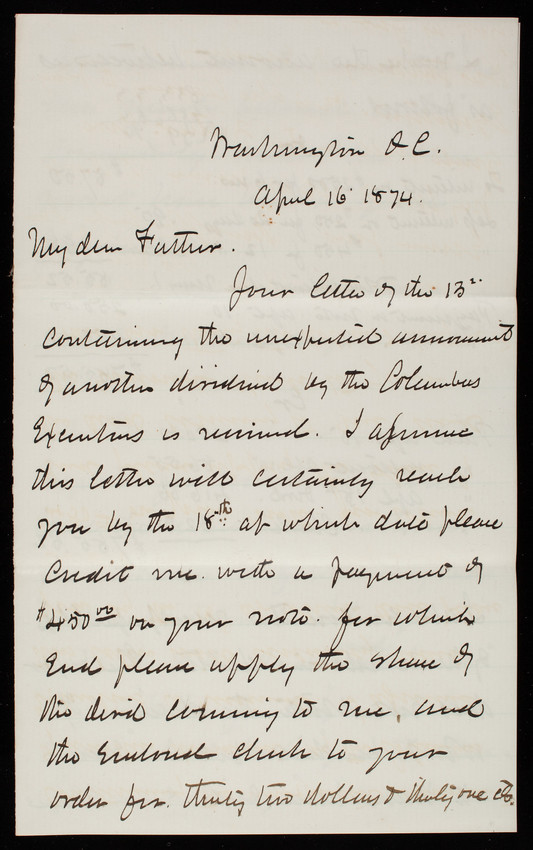 Washington D.C.
April 16 1874.
My dear Father.
Your letter of the 13th
containing the unexpected announcement
of another dividend by the Columbus
Executors is received. I assume
this letter will certainly reach
you by the 18th at which date please
credit me with a payment of
$450.00 on your note. for which
End please apply the share of
the divd coming to me, and
the Enclosed check to your
order for. thirty two dollars & thirty one cts.